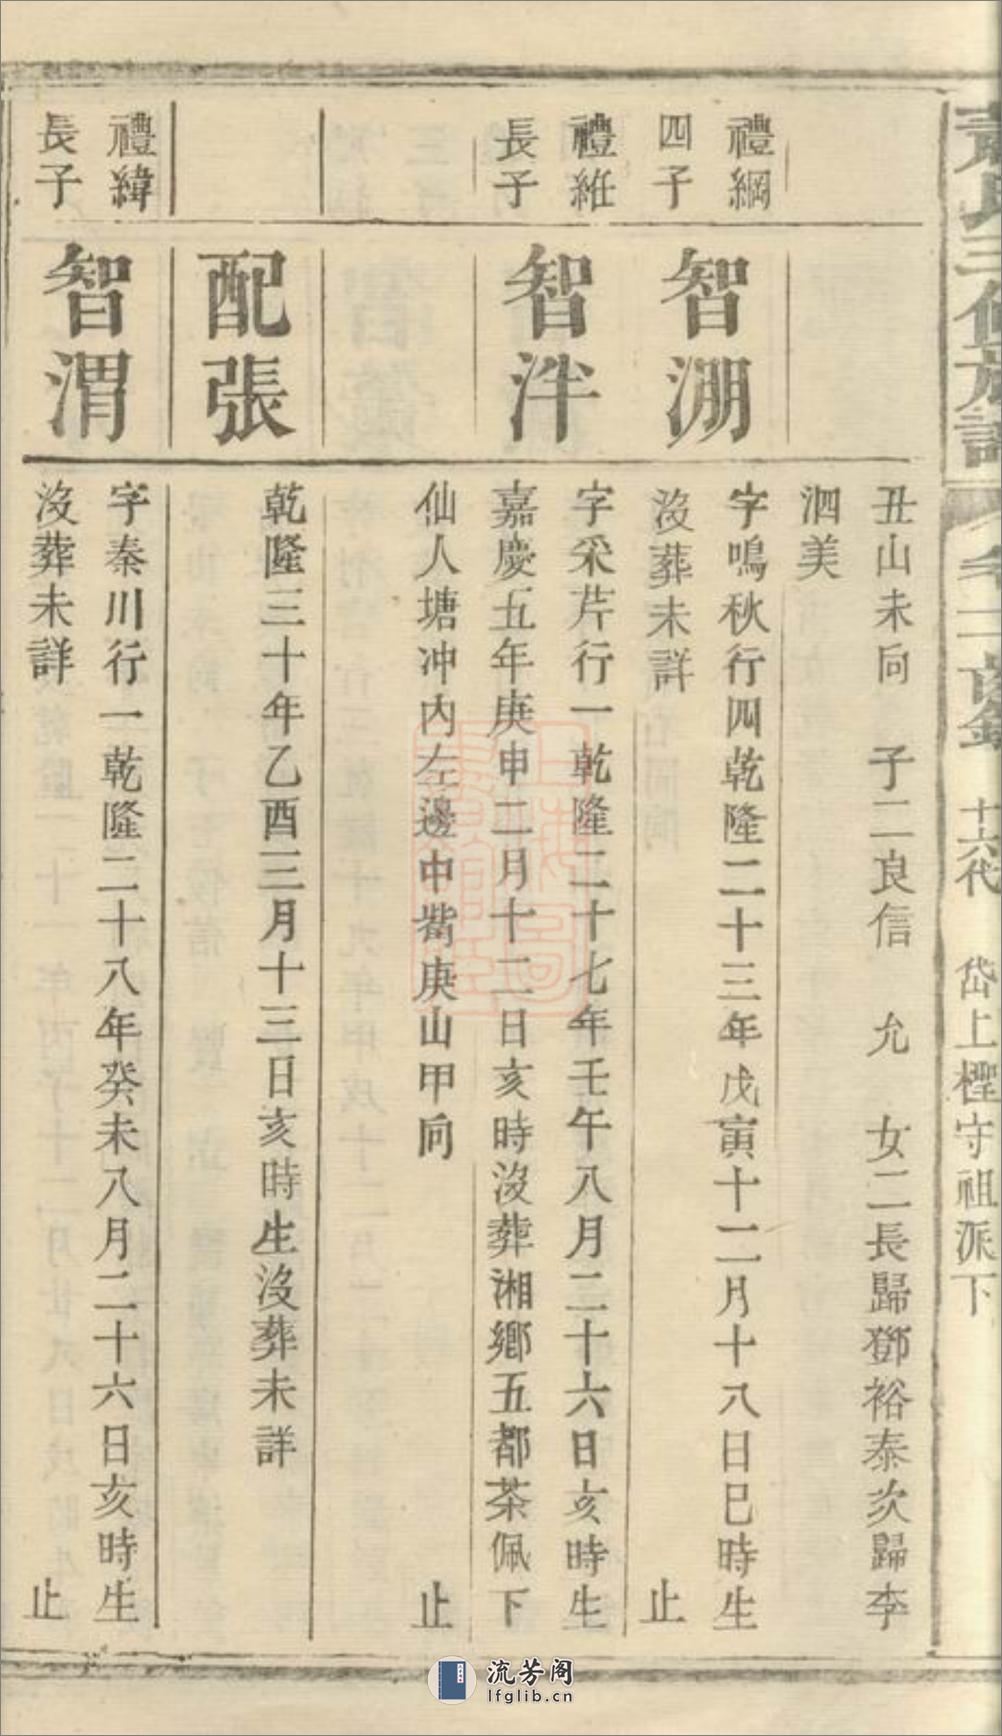 氏三修族譜 卷二 齒錄 十六代 岱上桱守祖派下
丑山未向 子二良信 允 女二長歸鄧裕泰次歸李
泗美
禮綱
四子
智淜
字鳴秋行四乾隆二十三年戊寅十二月十八日巳時生
沒葬未詳 止
禮維
長子
智泮
字采芹行一乾隆二十七年壬午八月二十六日亥時生
嘉慶五年庚申二月十二日亥時沒葬湘鄉五都茶佩下
仙人塘冲內左邊中嵅庚山甲向 止
配張
乾隆三十年乙酉三月十三日亥時生沒葬未詳
禮緯
長子
智渭
字秦川行一乾隆二十八年癸未八月二十六日亥時生
沒葬未詳 止
流芳阁
lfglib.cn